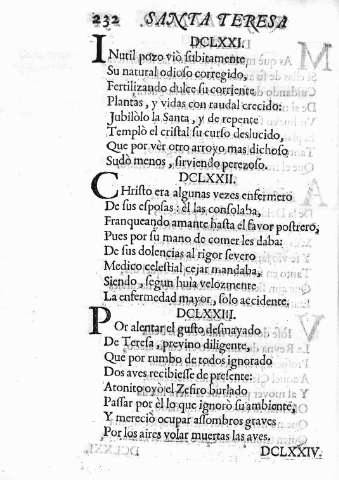 232 SANTA TERESA
DCLXXI.
INutil pozo viò subitamente
Su natural odioso corregido,
Fertilizando dulce su corriente
Plantas, y vidas con raudal crecido:
Jubilòlo la Santa, y de repente
Templò el cristal su curso deslucido,
Que por vèr otro arroyo mas dichoso
Sudò menos, sirviendo perezoso.
DCLXXII.
CHristo era algunas vezes enfermero
De sus esposas: èl las consolaba,
Franqueando amante hasta el favor postrero,
Pues por su mano de comer les daba:
De sus dolencias al rigor severo
Medico celestial cejar mandaba,
Siendo, segun huìa velozmente
La enfermedad mayor, solo accidente.
DCLXXIII.
POr alentar el gusto desmayado
De Teresa, previno diligente,
Que por rumbo de todos ignorado
Dos aves recibiesse de presente:
Atonito oyò el Zefiro burlado
Passar por èl lo que ignorò su ambiente,
Y mereciò ocupar assombros graves
Por los aires volar muertas las aves.
DCLXXIV.